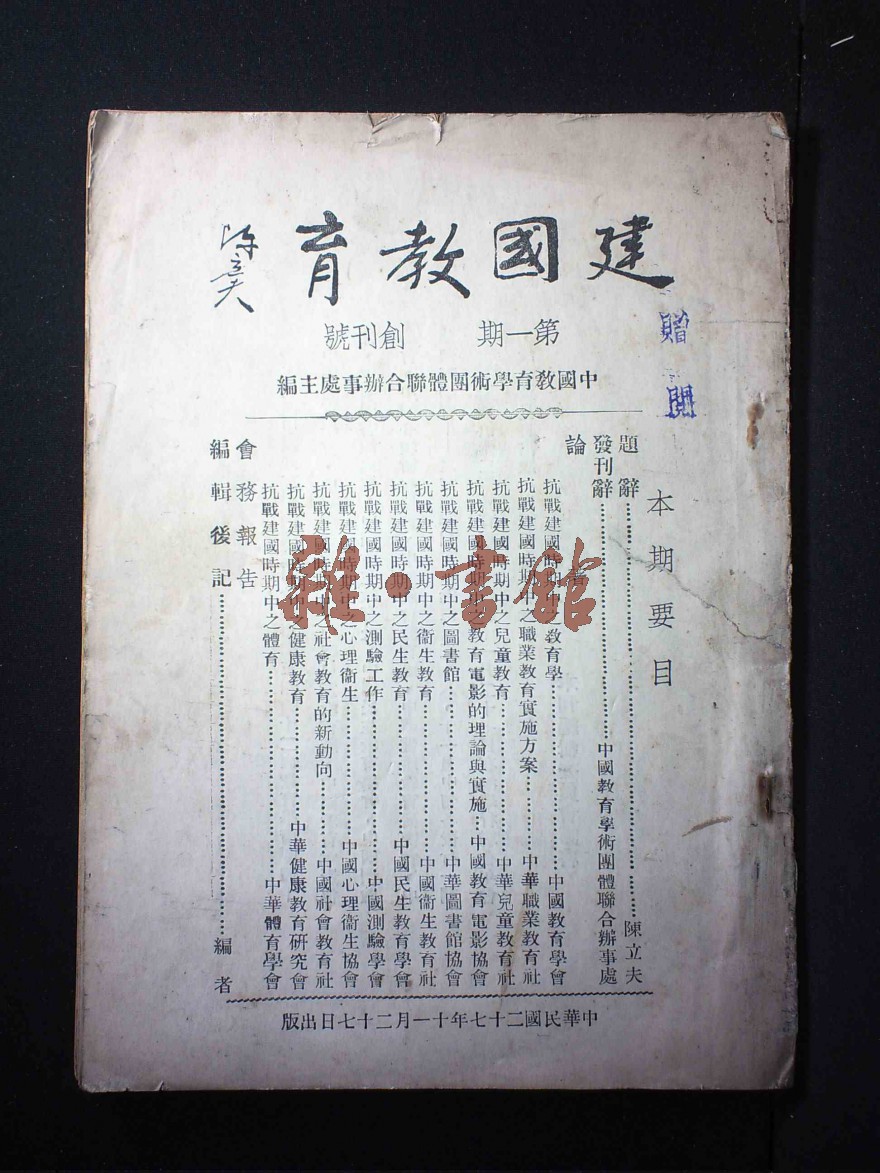 建國教育
陳立夫
第一期 創刊號
中國教育學術團體聯合辦事處主編
贈閱
本期要目
題辭……陳立夫
發刊辭……中國教育學術團體聯合辦事處
論著
抗戰建國時期中之教育學……中國教育學會
抗戰建國時期中之職業教育實施方案……中華職業教育社
抗戰建國時期中之兒童教育……中華兒童教育社
抗戰建國時期之教育電影的理論與實施……中國教育電影協會
抗戰建國時期中之圖書館……中華圖書館協會
抗戰建國時期中之衞生教育……中國衞生教育社
抗戰建國時期中之民生教育……中國民生教育學會
抗戰建國時期中之測驗工作……中國測驗學會
抗戰建國時期中之心理衞生……中國心理衞生協會
抗戰建國時期中之社會教育的新動向……中國社會教育社
抗戰建國時期中之健康教育……中華健康教育研究會
抗戰建國時期中之體育……中華體育學會
會務報告
編輯後記……編者
中華民國二十七年十一月二十七日出版
雜·書館